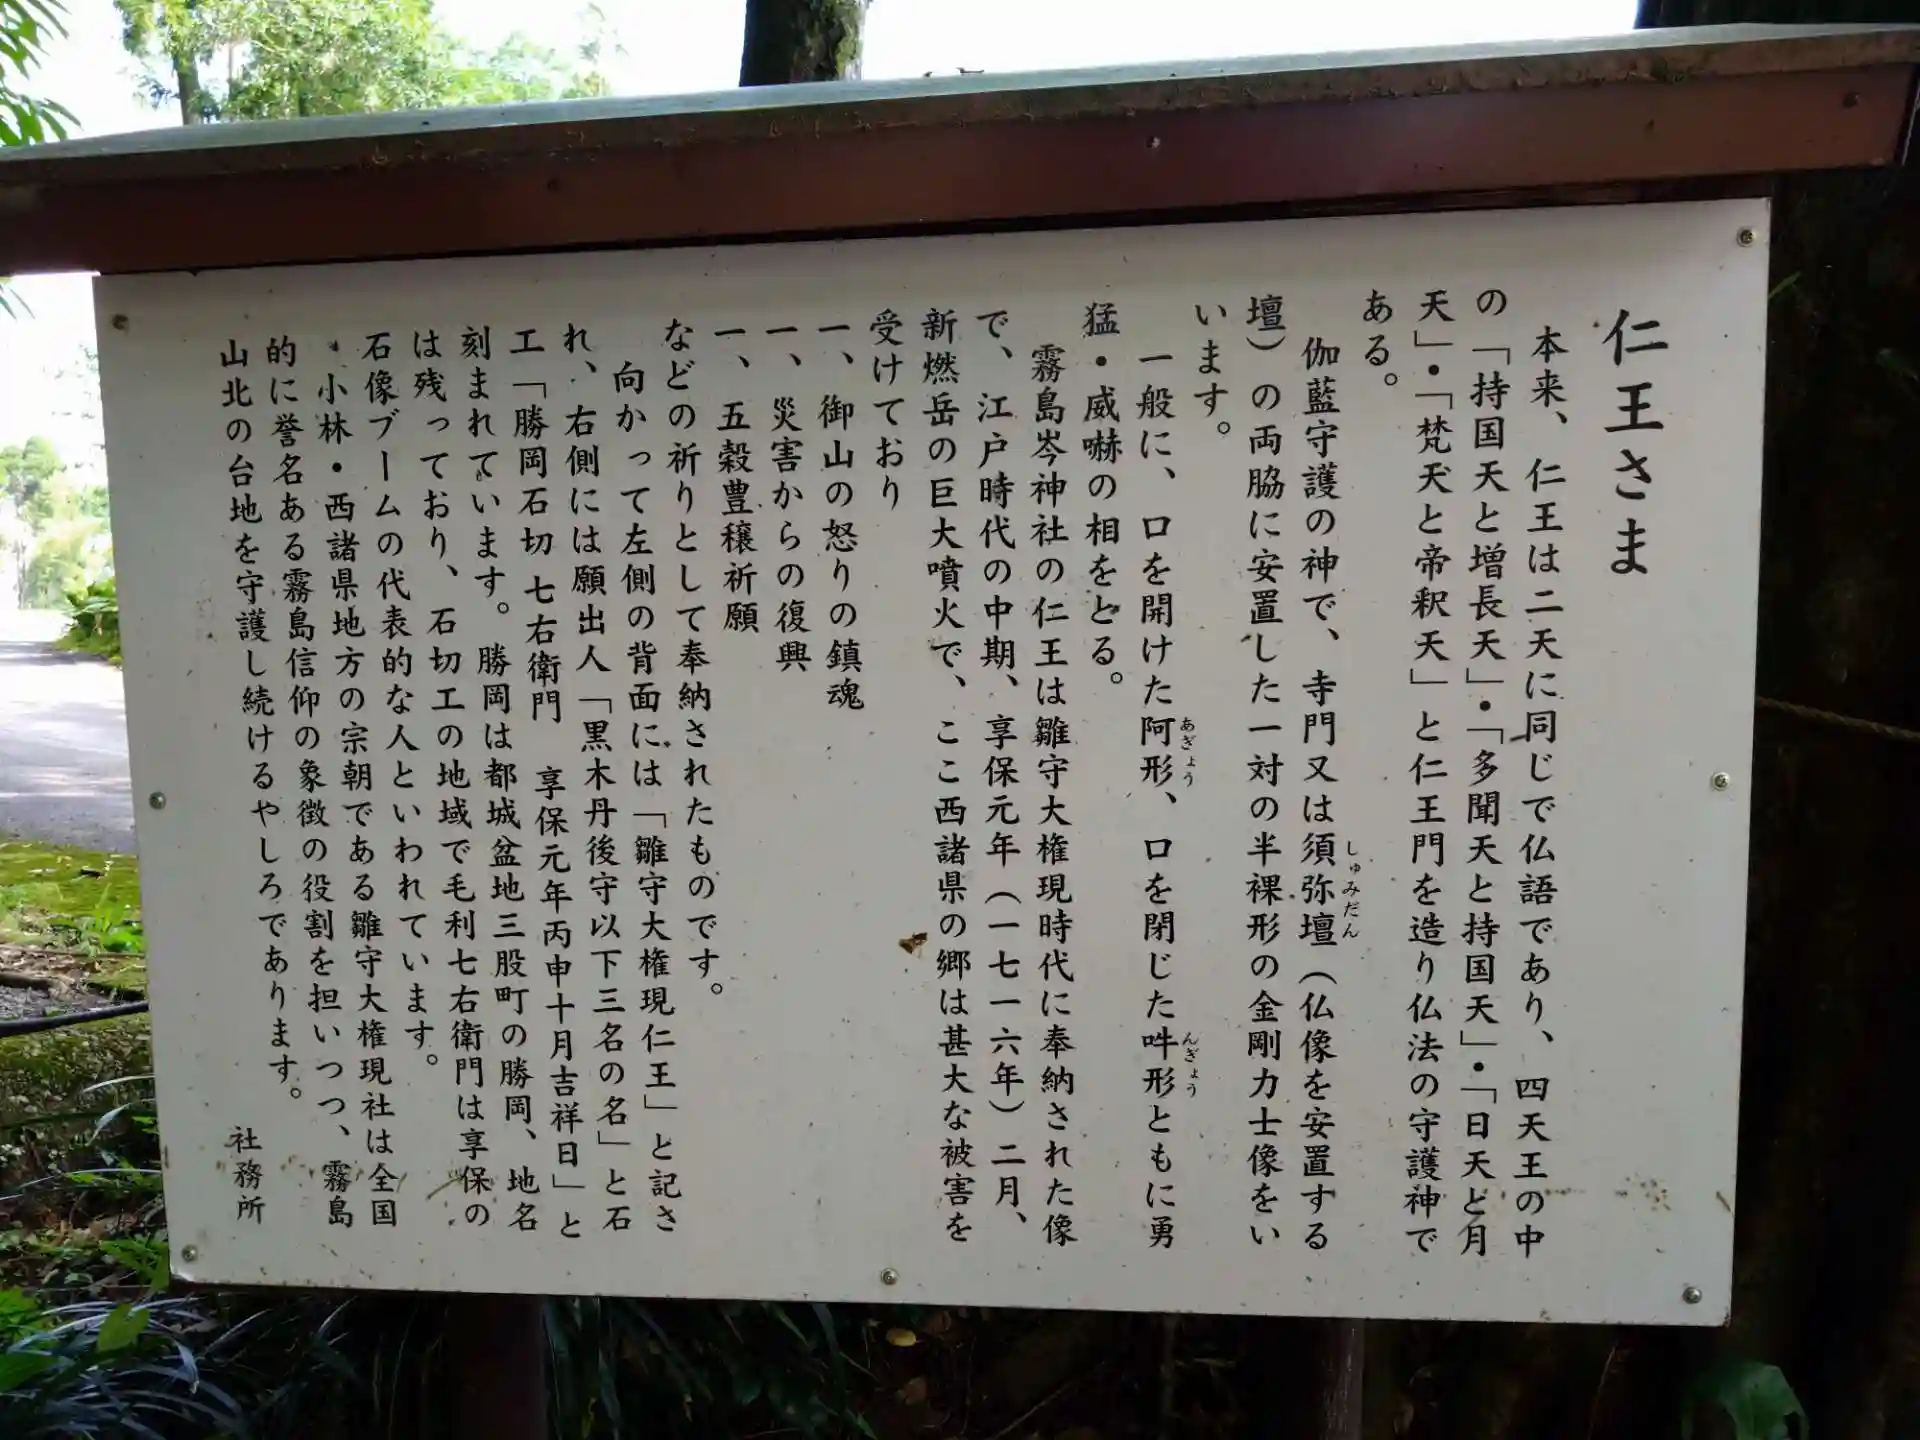 仁王さま
本来、仁王は二天に同じで仏語であり、四天王の中
の「持国天と増長天」・「多聞天と持国天」・「日天と月
天」・「梵天と帝釈天」と仁王門を造り仏法の守護神で
ある。
伽藍守護の神で、寺門又は須弥壇（仏像を安置する
しゅみだん
壇）の両脇に安置した一対の半裸形の金剛力士像をい
います。
一般に、口を開けた阿形、口を閉じた吽形ともに勇
あぎょう
んぎょう
猛・威嚇の相をとる。
霧島岑神社の仁王は雛守大権現時代に奉納された像
で、江戸時代の中期、享保元年（一七一六年）二月、
新燃岳の巨大噴火で、ここ西諸県の郷は甚大な被害を
受けており
一、御山の怒りの鎮魂
一、災害からの復興
一、五穀豊穣祈願
などの祈りとして奉納されたものです。
向かって左側の背面には「雛守大権現仁王」と記さ
れ、右側には願出人「黒木丹後守以下三名の名」と石
工「勝岡石切 七右衛門 享保元年丙申十月吉祥日」と
刻まれています。勝岡は都城盆地三股町の勝岡、地名
は残っており、石切工の地域で毛利七右衛門は享保の
石像ブームの代表的な人といわれています。
・小林・西諸県地方の宗朝である雛守大権現社は全国
的に誉名ある霧島信仰の象徴の役割を担いつつ、霧島
山北の台地を守護し続けるやしろであります。
社務所